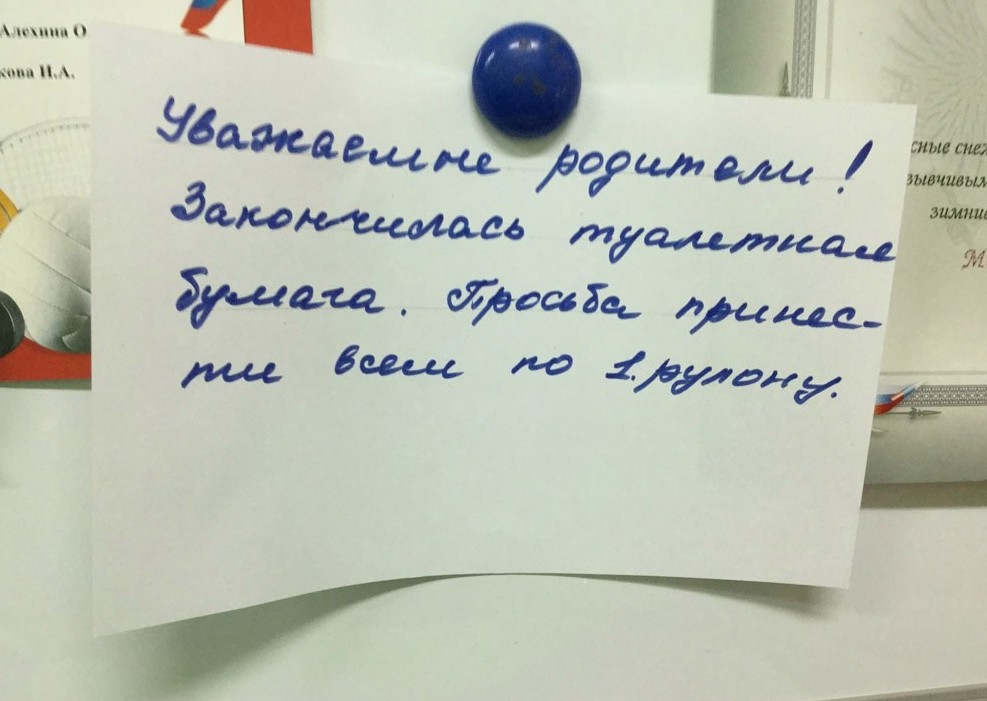 Алехина О
кова И.А.
Уважаемые родители!
Закончилась туалетная
бумага. Просьба принес-
ти всем по 1.рулону.
сные сне
зывчивым
зимние
М